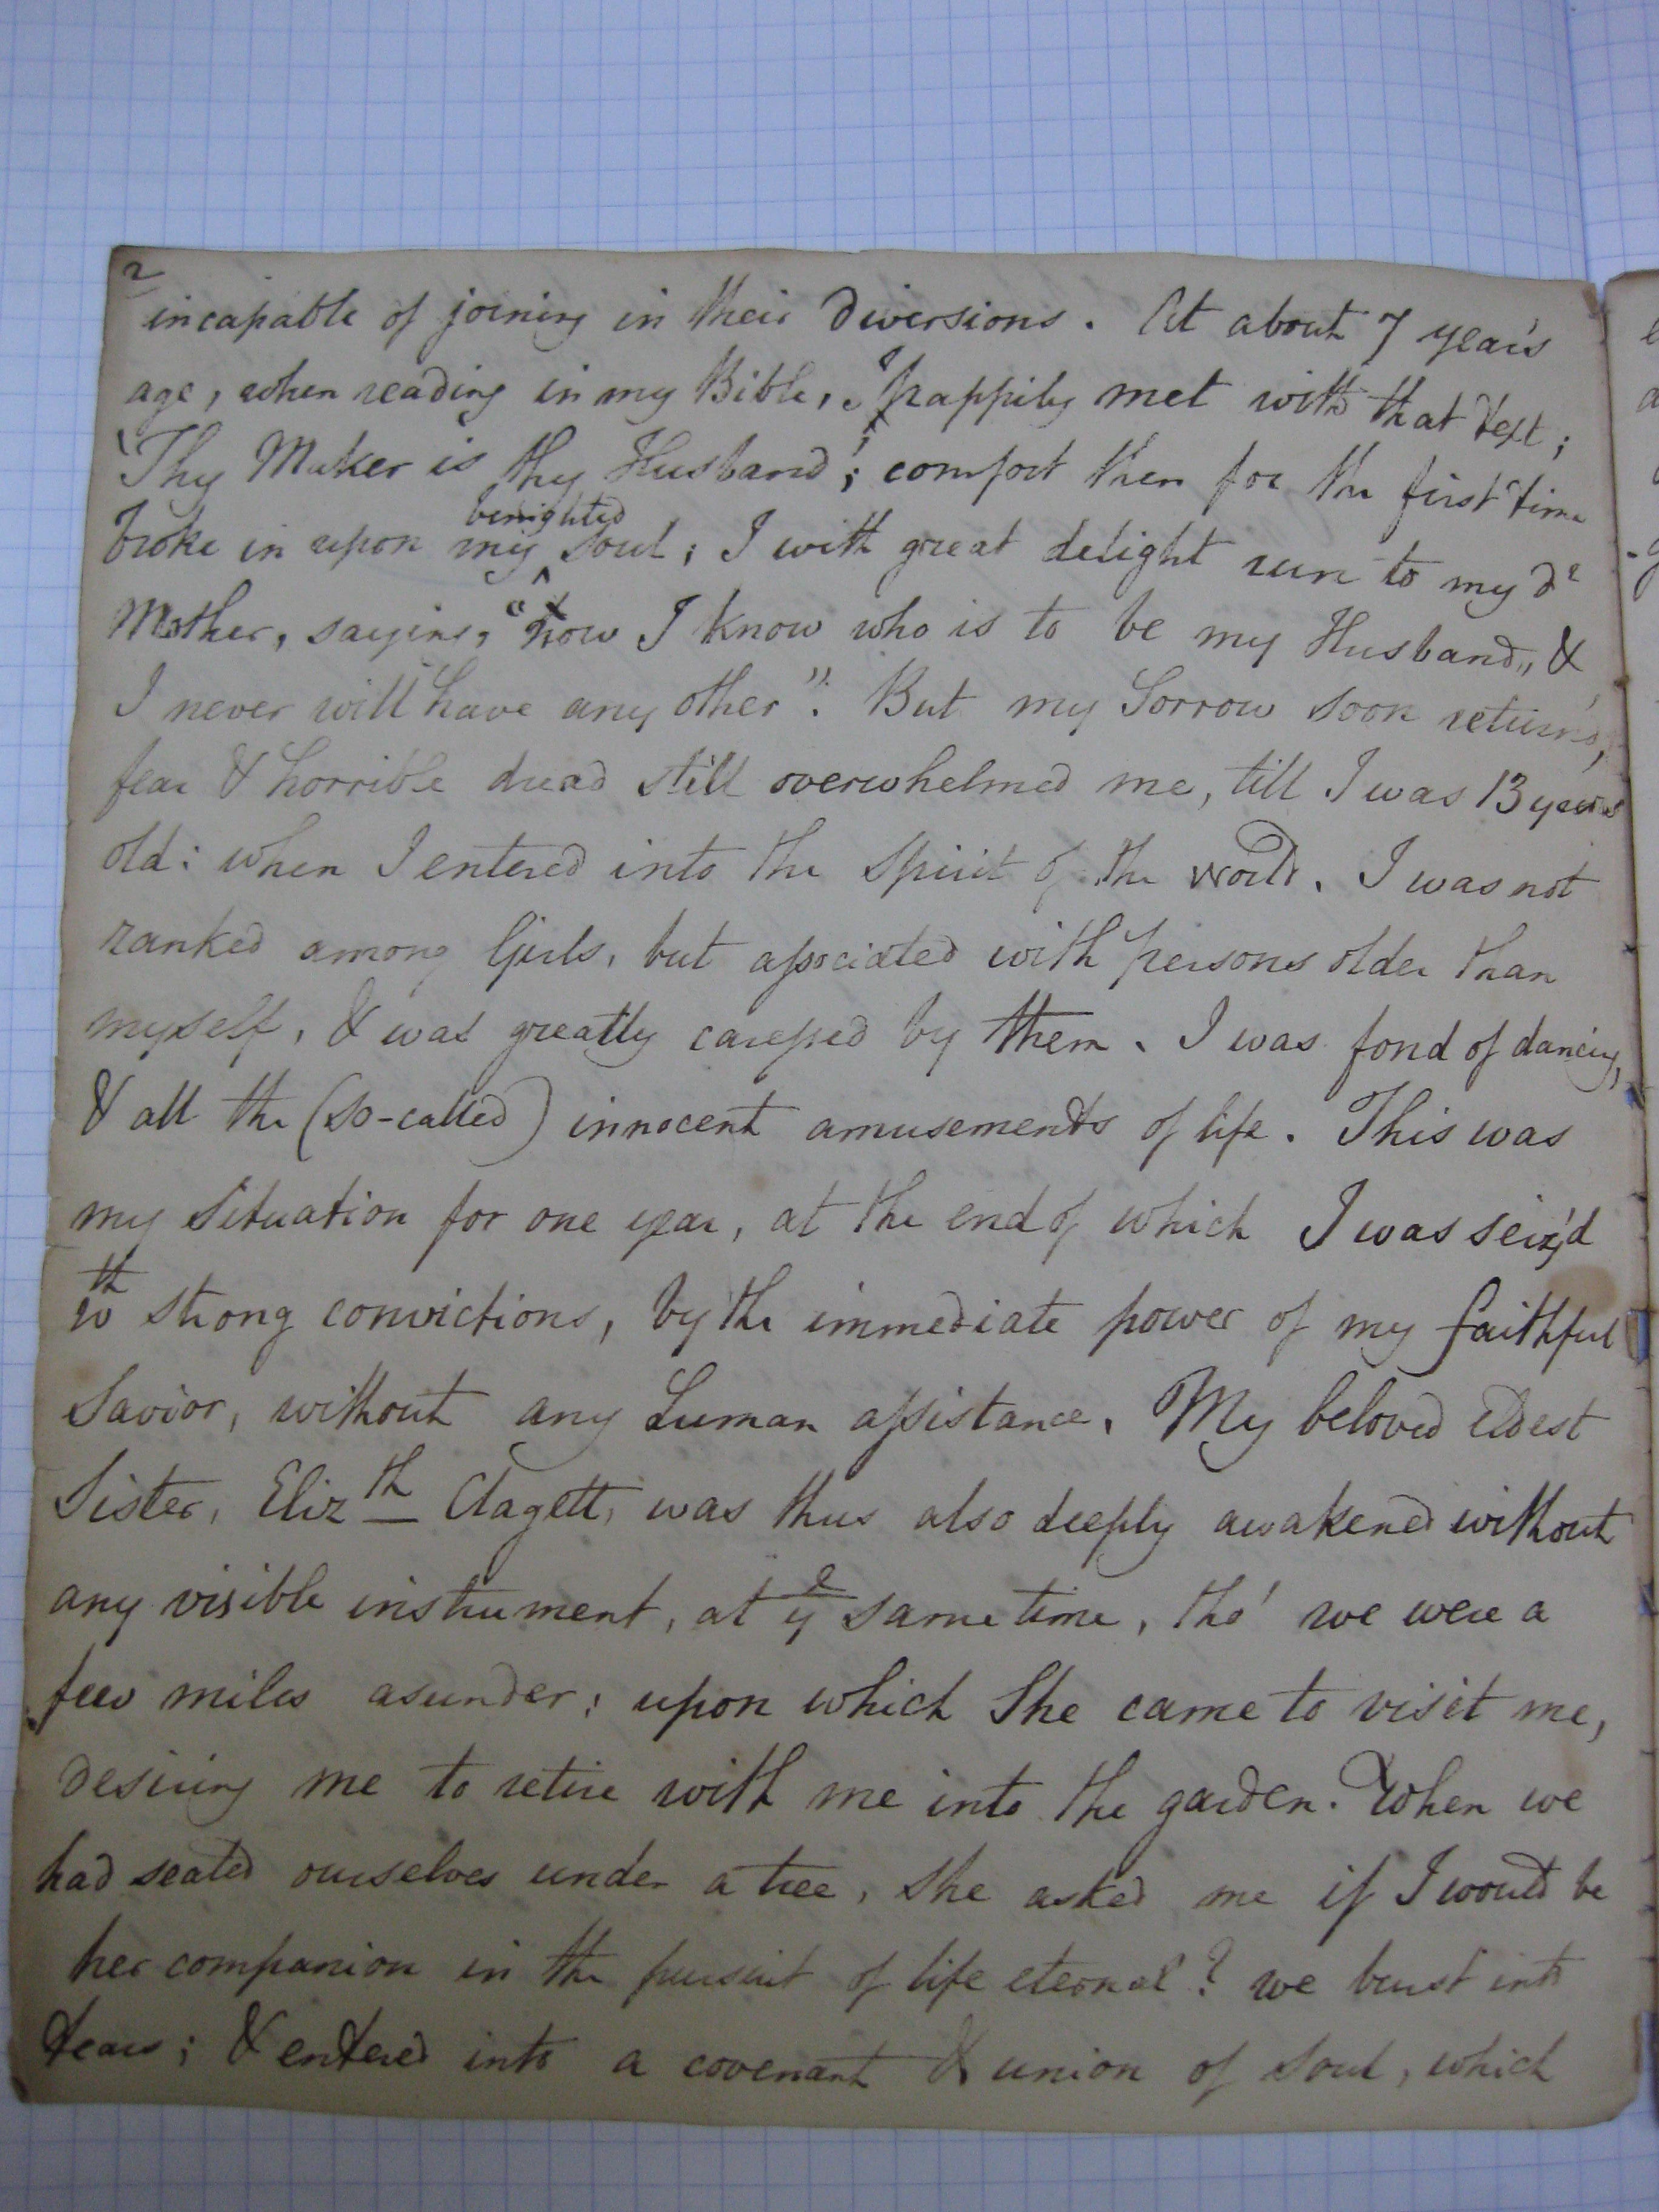 2
incapable of joining in their diversions. At about 7 year's
age, when reading in my Bible, I happily met with that text;
'Thy Maker is thy Husband'; comfort then for the first time
benighted
broke in upon my ^ soul; I with great delight run to my dr
Mother, saying, "now I know who is to be my Husband, &
I never will have any other". But my Sorrow soon return'd,
fear & horrible dread still overwhelmed me, till I was 13 years
old: when I entered into the spirit of the world. I was not
ranked among Girls, but associated with persons older than
myself, & was greatly caressed by them. I was fond of dancing,
& all the (so-called) innocent amusements of life. This was
my situation for one year, at the end of which I was seiz'd
wth strong convictions, by the immediate power of my faithful
Savior, without any human assistance. My beloved Eldest
Sister, Elizth Clagett, was thus also deeply awakened without
any visible instrument, at ye same time, tho' we were a
few miles asunder; upon which She came to visit me,
desiring me to retire with me into the garden. When we
had seated ourselves under a tree, she asked me if I would be
her companion in the pursuit of life eternal? we burst into
tears; & entered into a covenant & union of soul, which